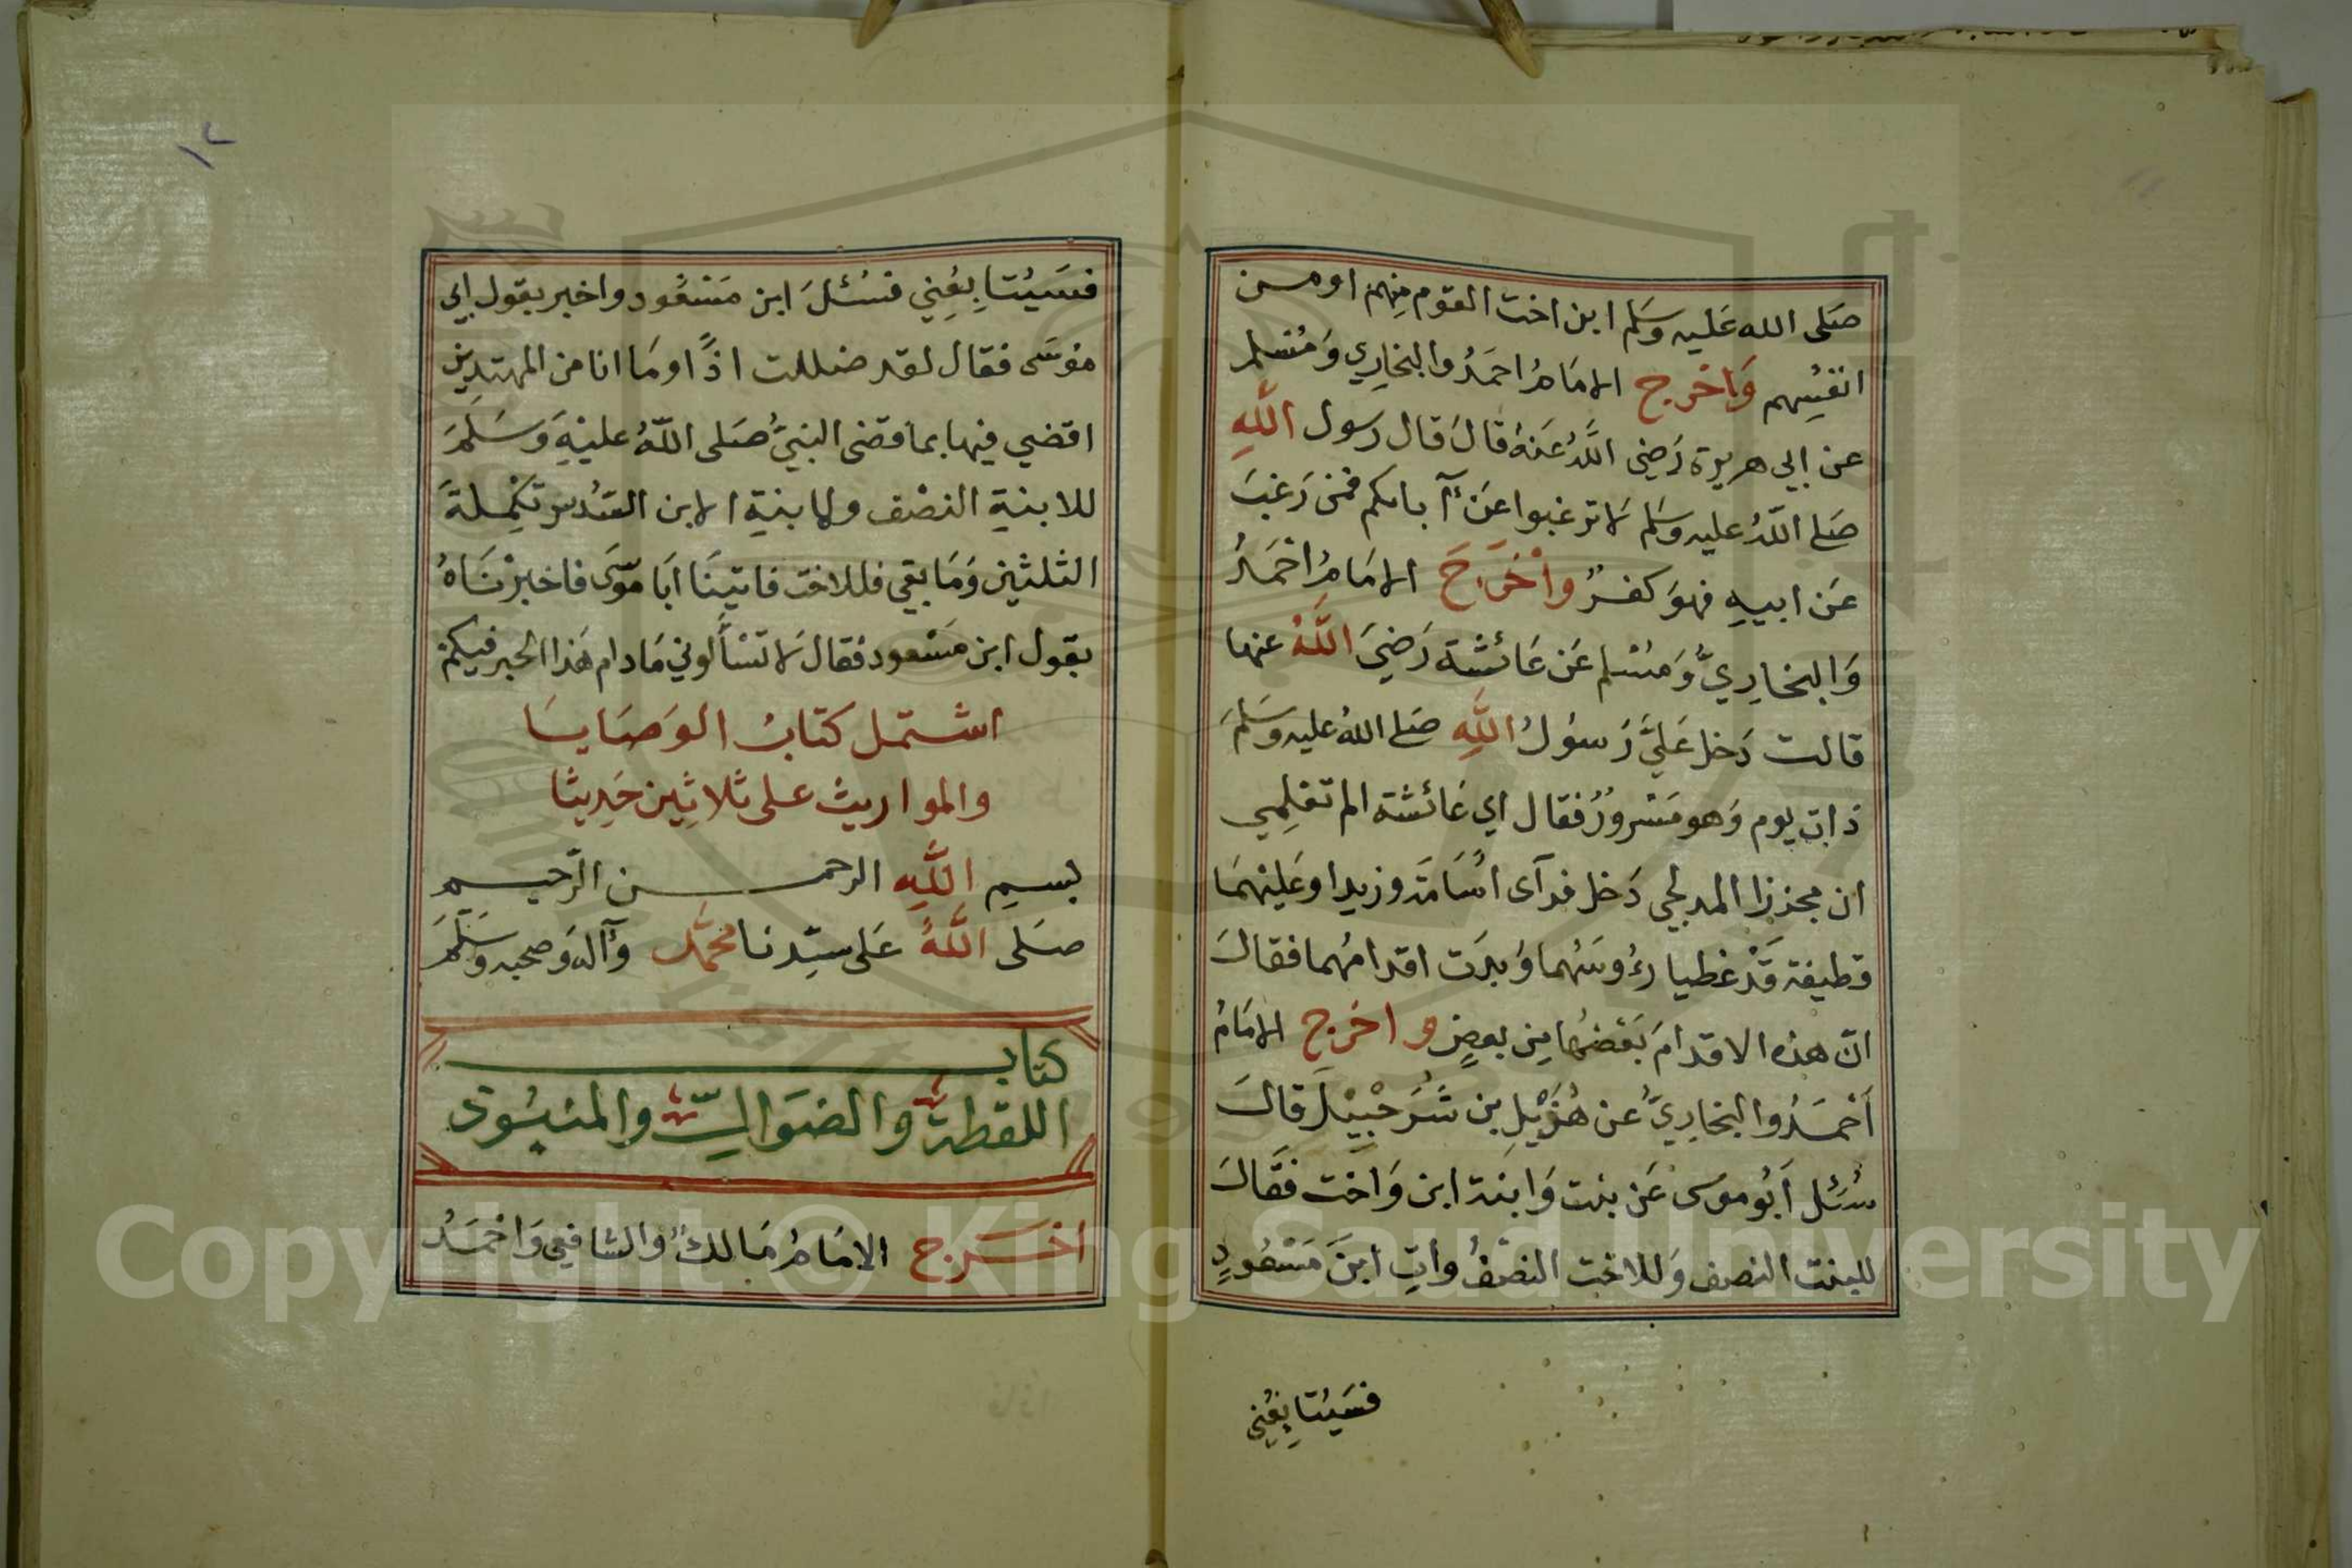 صَلى الله عَليه وسَلم ابن اخت القوم مِنهم او من
انفُسِهم وَاخرج الامَامُ احَمدُ والبخَارِي وَمُسْلم
عن ابي هريرة رَضِى اللَّهُ عَنهُ قالَ قال رسول اللَّهِ
صَلى اللّهُ عليه وسَلم لَا ترغبوا عَن آبائكم فمَن رَغبَ
عَن ابيهِ فهوَ كفرٌ وأخْرَجَ الامَامُ احْمَدُ
وَالبخارِيُّ وَمسْلم عَن عَائشة رَضِيَ اللَّهُ عنها
قالت دَخل عَليَّ رَسوُلُ اللَّهِ صَلى اللهُ عليه وسَلمَ
ذات يوم وَهو مَسْرورٌ فقال اي عَائشة الم تعْلمِي
ان مجززا المدلجي دَخل فرآى اسُامَة وزيدا وعَليْهمَا
قطيفة قَدْ غطيا رءُوسَهُما وَبدَت اقدامُهما فقالَ
انّ هذه الاقدامَ بَعْضُها مِن بعضٍ واخرج الامَامُ
أحْمدُ والبخَارِيُّ عن هُزَيْلِ بن شُرَحْبيْلَ قالَ
سُئِل أبوُ موسى عَن بنت وَابنة ابن وَاخت فقَالَ
للبنت النصف وَللاخت النصْفُ وأتِ ابنَ مَسْعُودٍ
فسَيُتابِعُنِي
فسَيُتابِعُنِي فسُئلَ ابن مَسْعُود واخبر بقول ابي
موُسَى فقال لقد ضللت اذًا ومَا انا من المهتدِين
اقضي فيها بما قضى النبيُّ صَلى اللّهُ عليْهِ وَسَلمَ
للابنةِ النصْف ولابنةِ الابن السّدُس تكمِلةَ
الثلثين وَمَا بقي فللاخت فاتينَا ابَا موسَى فاخبرْنَاهُ
بقول ابن مَسْعود فقال لَا تسْألوني مَا دام هَذا الحبر فيكمْ
اشتمل كتابُ الوَصَايَا
والمواريث على ثلاثِين حَدِيثا
بسمِ اللَّهِ الرحمن الرّحيم
صَلى اللَّهُ عَلى سيّدنا محمَّد وآله وَصحبه وسَلّمَ
كتاب
اللقطة والضوَالّ والمنبُوذ
أخرج الامَامُ مَالكٌ والشافعي وَاحْمَدُ
١٢
Copyright © King Saud University